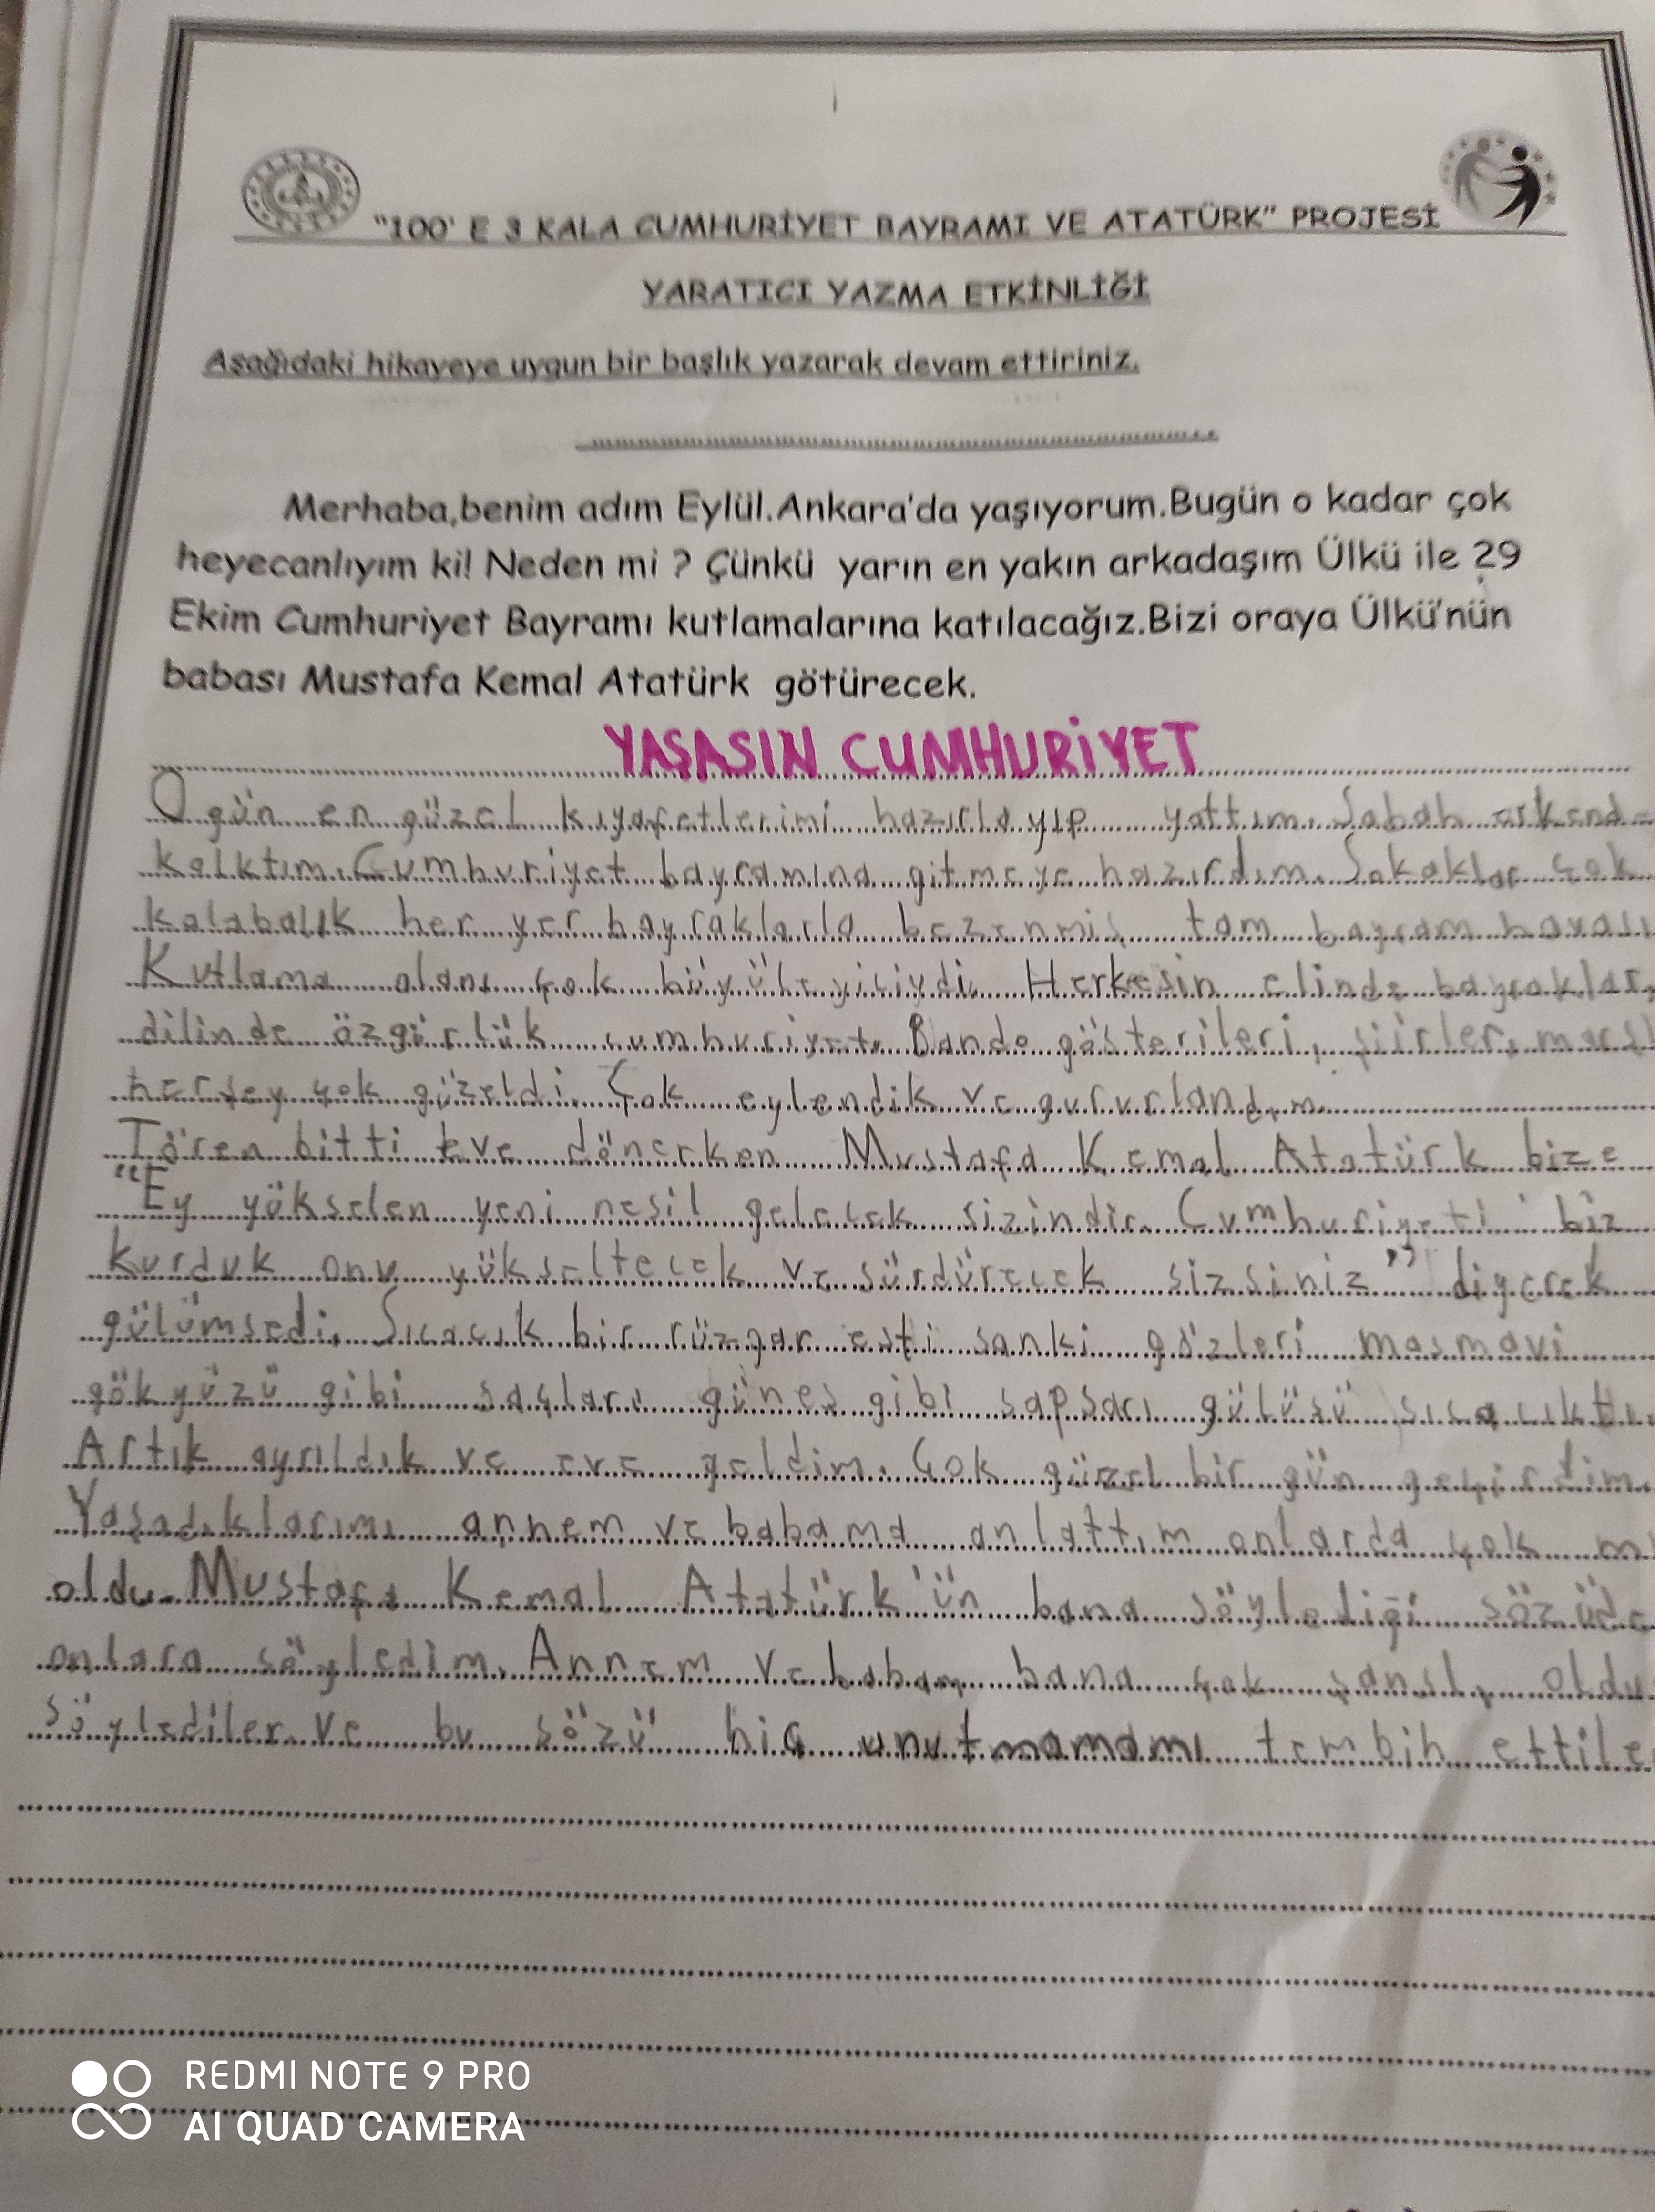 "100' E 3 KALA CUMHURİYET BAYRAMI VE ATATÜRK" PROJESİ
YARATICI YAZMA ETKİNLİĞİ
Aşağıdaki hikayeye uygun bir başlık yazarak devam ettiriniz.
Merhaba,benim adım Eylül.Ankara'da yaşıyorum.Bugün o kadar çok
heyecanlıyım ki! Neden mi ? Çünkü yarın en yakın arkadaşım Ülkü ile 29
Ekim Cumhuriyet Bayramı kutlamalarına katılacağız.Bizi oraya Ülkü'nün
babası Mustafa Kemal Atatürk götürecek.
YAŞASIN CUMHURİYET
O gün en güzel kıyafetlerimi hazırlayıp yattım. Sabah erkend-
kalktım. Cumhuriyet bayramına gitmeye hazırdım. Sokaklar çok
kalabalık her yer bayraklarla bezenmiş tam bayram havası
Kutlama alanı çok büyüleyiciydi. Herkesin elinde bayraklar,
dilinde özgürlük cumhuriyet. Bando gösterileri, şiirler, marşl
herşey çok güzeldi. Çok eylendik ve gururlandım
Tören bitti eve dönerken Mustafa Kemal Atatürk bize
"Ey yökselen yeni nesil gelecek sizindir. Cumhuriyeti biz
kurduk onu yükseltecek ve sürdürecek sizsiniz" diyerek
gülümsedi. Sıcacık bir rüzgar esti sanki gözleri masmavi
gökyüzü gibi saçları güneş gibi sapsarı gülüşü sıcacıktı.
Artık ayrıldık ve eve geldim. Çok güzel bir gün geçirdim.
Yaşadıklarımı annem ve babama anlattım onlarda çok m
oldu. Mustafa Kemal Atatürk'ün bana söylediği sözüde
onlara söyledim. Annem ve babam bana çok şanslı oldu
söylediler ve bu sözü hiç unutmamamı tembih ettile
REDMI NOTE 9 PRO
AI QUAD CAMERA